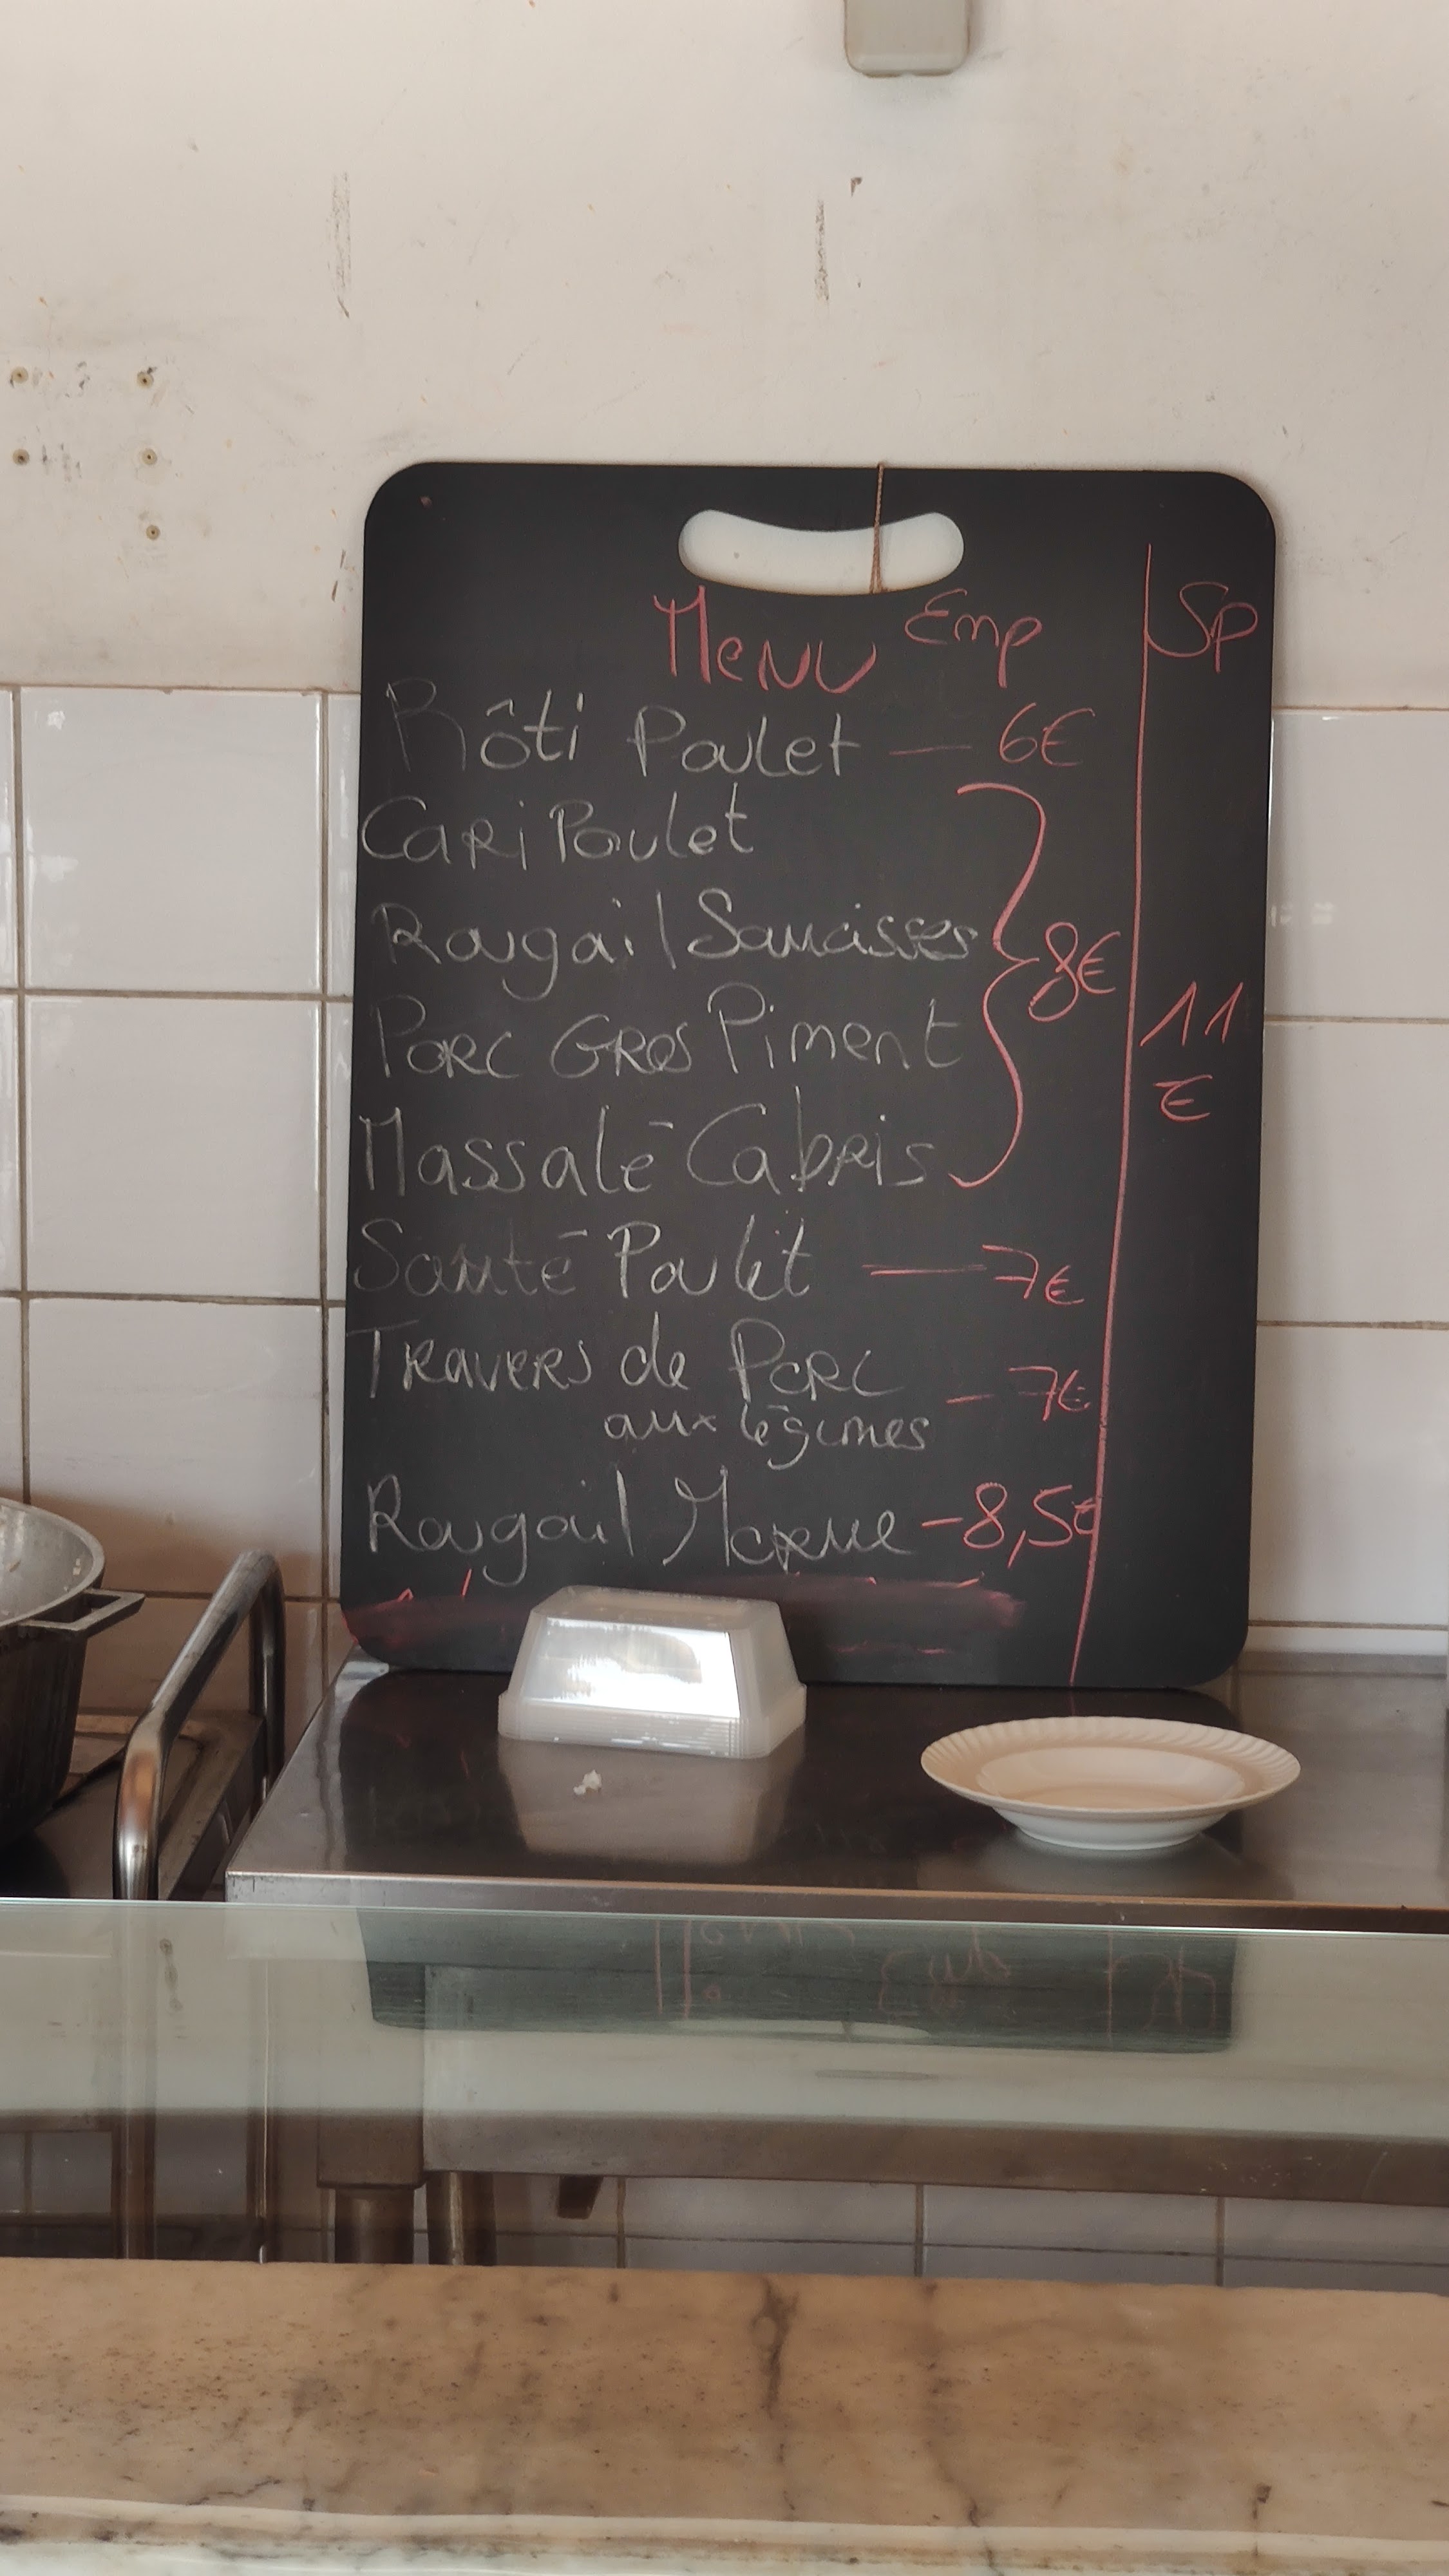 Menu Emp Sp
Rôti Poulet — 6€
Cari Poulet
Rougail Saucisses
8€
Porc Gros Piment
11
€
Massalé Cabris
Sauté Poulet — 7€
Travers de Porc
aux légumes - 7€
Rougail Morue - 8,5€